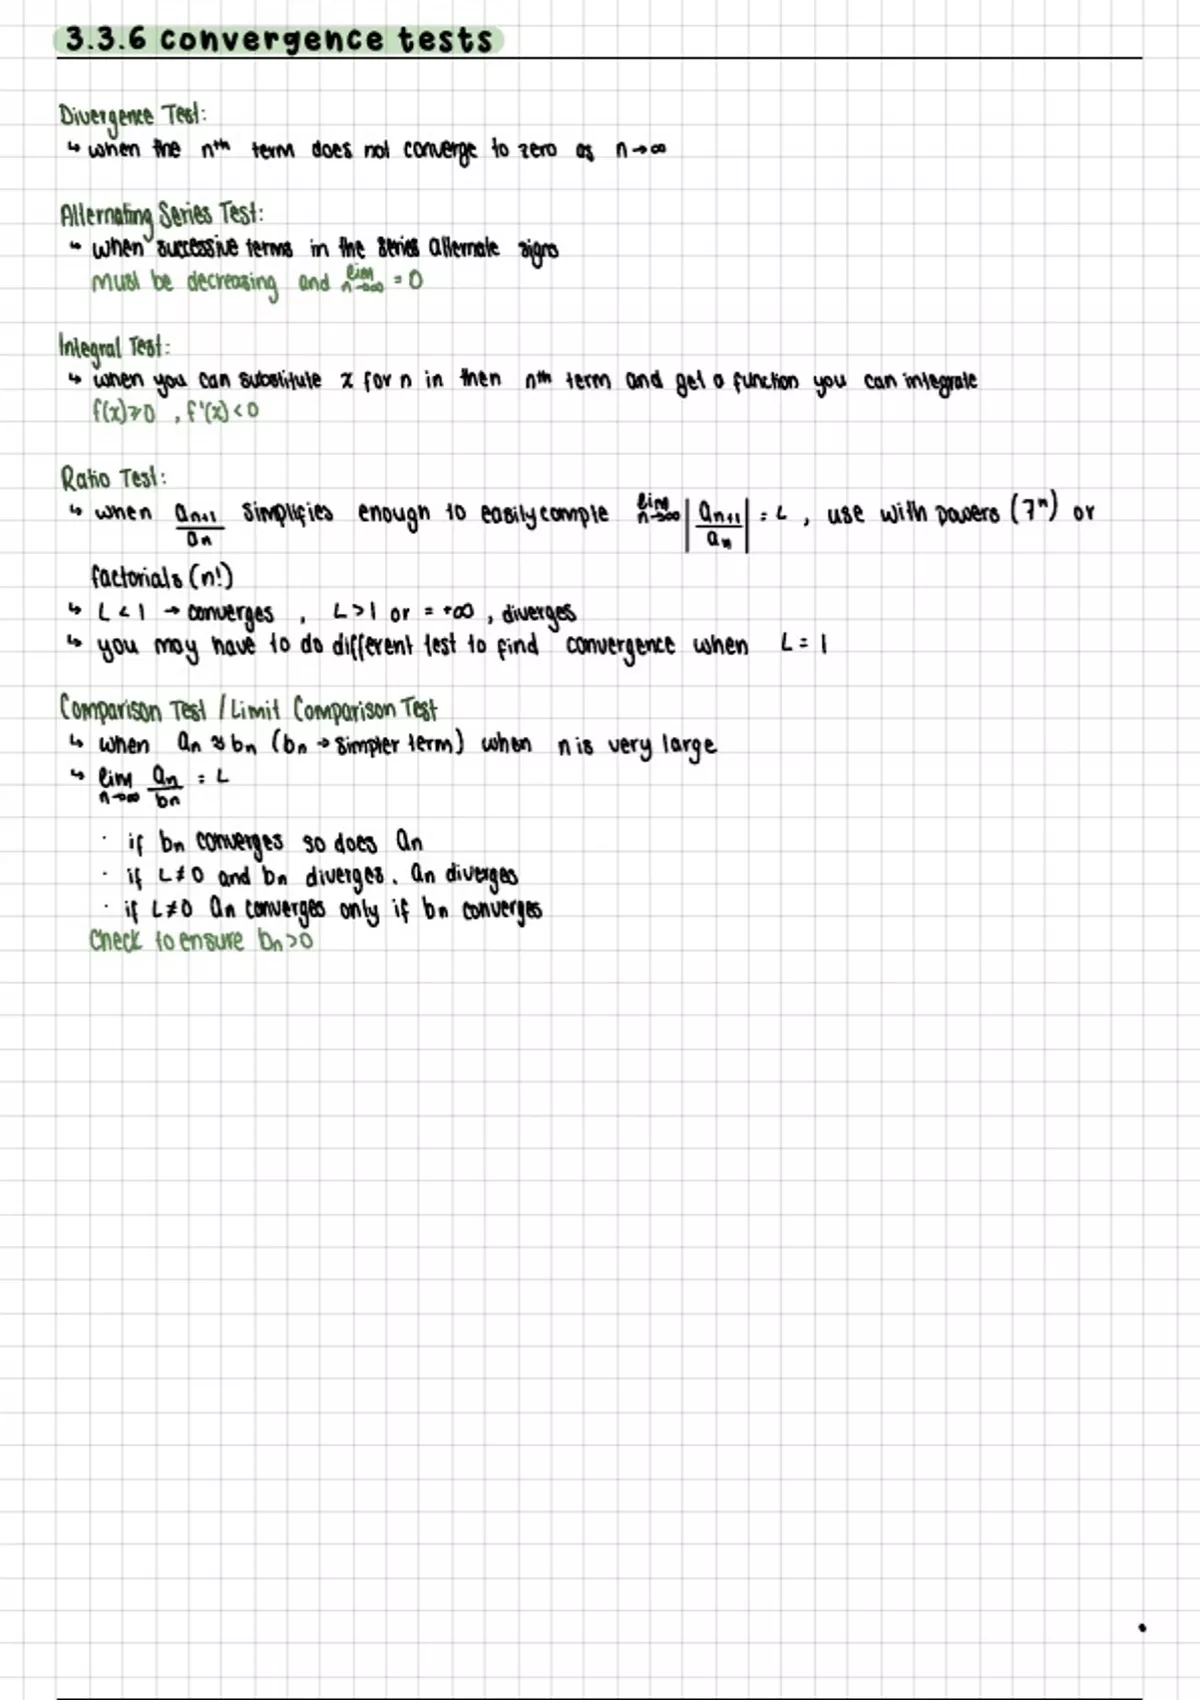 3.3.6 convergence tests
Divergence Test:
↳ when the nᵗʰ term does not converge to zero as n→∞
Alternating Series Test:
↳ when successive terms in the series alternate signs
must be decreasing and lim n→∞ = 0
Integral Test:
↳ when you can substitute x for n in then nᵗʰ term and get a function you can integrate
f(x)≥0 , f'(x)<0
Ratio Test:
↳ when aₙ₊₁/aₙ simplifies enough to easily compte lim n→∞ |aₙ₊₁/aₙ| = L , use with powers (7ⁿ) or
factorials (n!)
↳ L<1 → converges , L>1 or = +∞ , diverges
↳ you may have to do different test to find convergence when L = 1
Comparison Test / Limit Comparison Test
↳ when aₙ ≈ bₙ (bₙ → simpler term) when n is very large
↳ lim n→∞ aₙ/bₙ = L
· if bₙ converges so does aₙ
· if L≠0 and bₙ diverges, aₙ diverges
· if L≠0 aₙ converges only if bₙ converges
Check to ensure bₙ>0